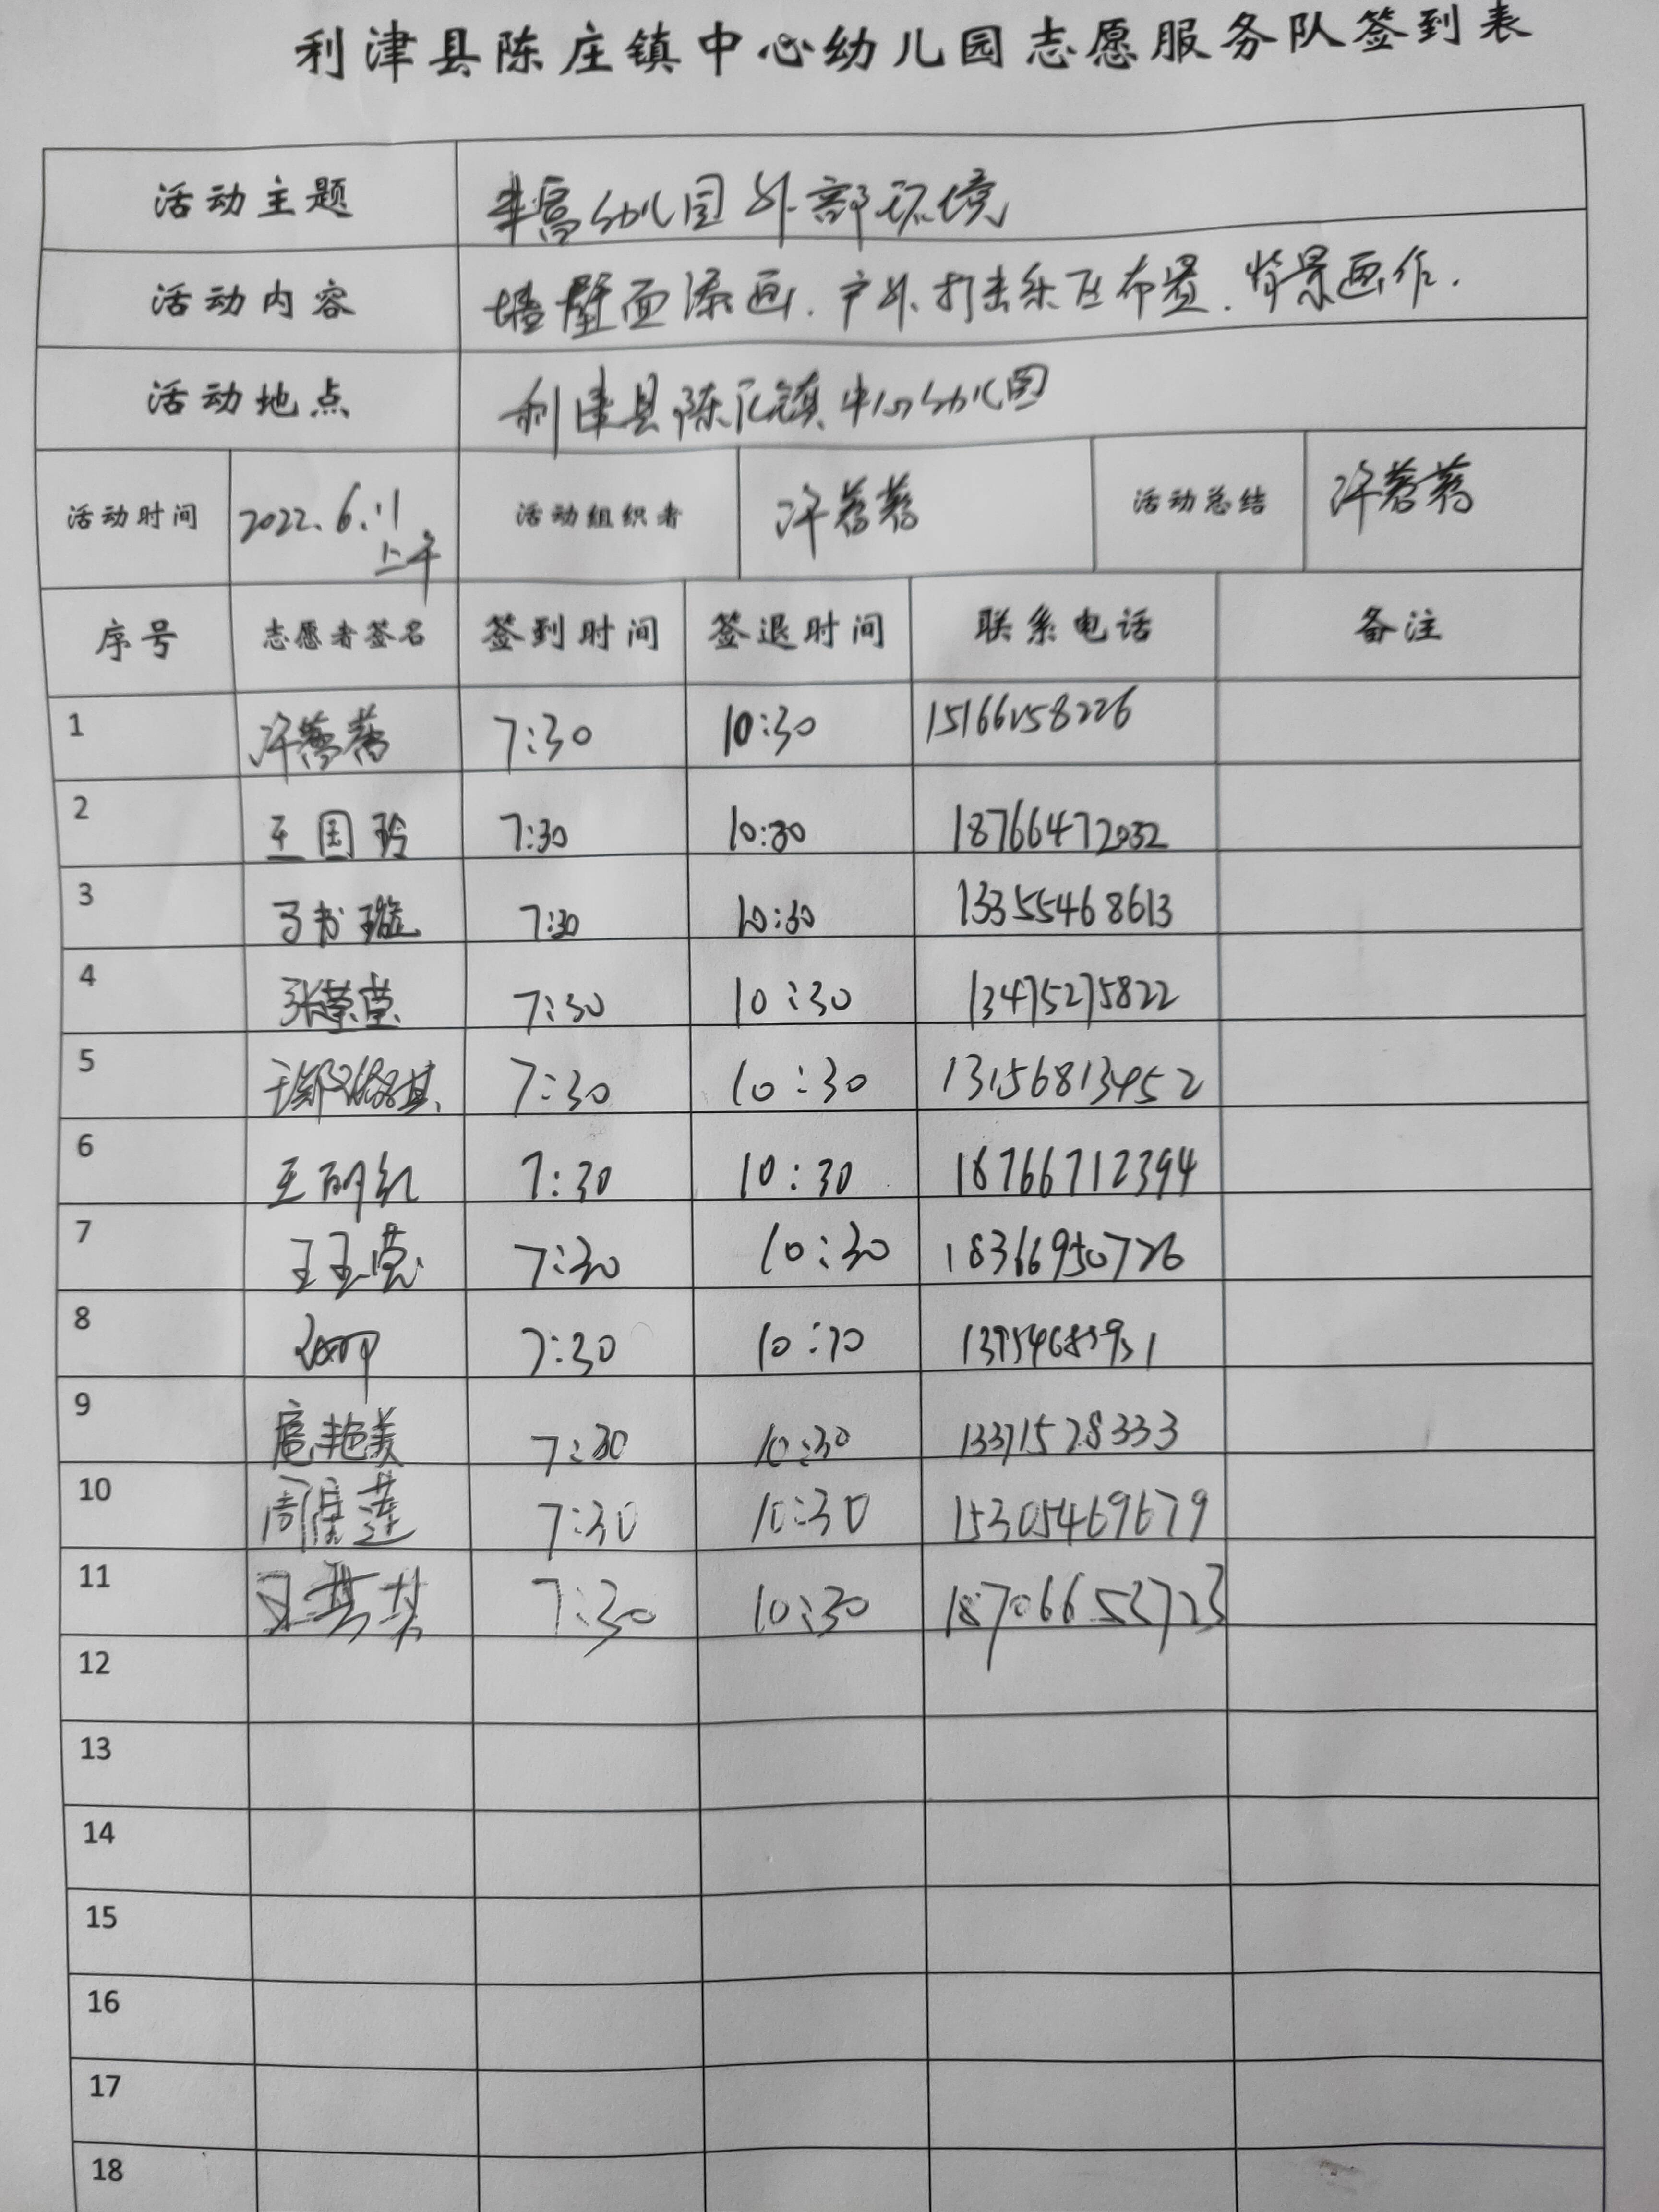 利津县陈庄镇中心幼儿园志愿服务队签到表
活动主题 丰富幼儿园外部环境
活动内容 墙壁面添画、户外打击乐区布置、背景画作.
活动地点 利津县陈庄镇中心幼儿园
活动时间 2022.6.11 上午 活动组织者 许蓉蓉 活动总结 许蓉蓉
序号 志愿者签名 签到时间 签退时间 联系电话 备注
1 许蓉蓉 7:30 10:30 15166258226
2 王国玲 7:30 10:30 18766472032
3 马书璇 7:30 10:30 13355468613
4 张莹莹 7:30 10:30 13475275822
5 7:30 10:30 13156813452
6 王丽红 7:30 10:30 18766712394
7 王玉莹 7:30 10:30 18366950726
8 7:30 10:30
9 扈艳美 7:30 10:30 13371528333
10 周莲 7:30 10:30 15305469679
11 7:30 10:30 18706653723
12
13
14
15
16
17
18